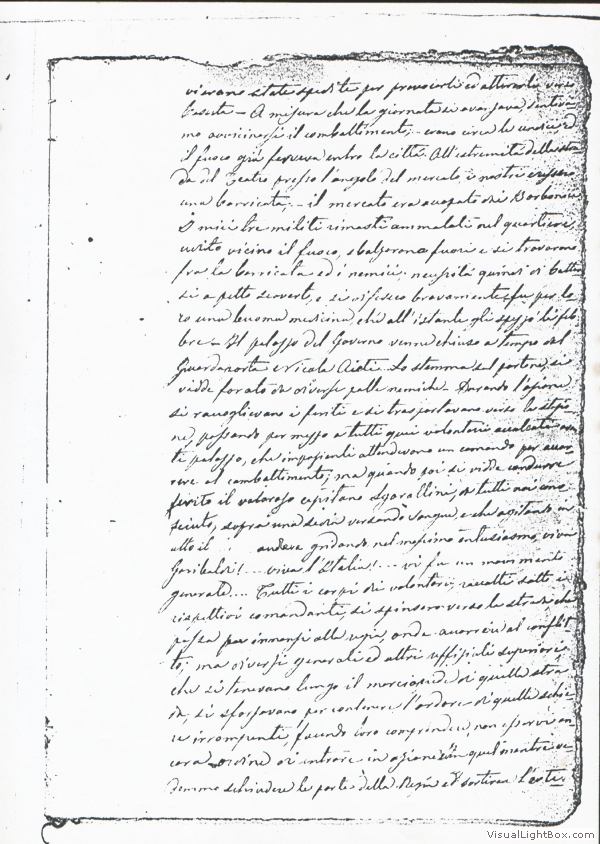 vi erano state spedite per provocarli ed attirarli verso
Caserta – A misura che la giornata si avanzava sentiva-
mo avvicinarsi il combattimento; – erano circa le undici ed
il fuoco già ferveva entro la città. All'estremità della stra-
da del Teatro presso l'angolo del mercato i nostri eressero
una barricata; – il mercato era occupato dai Borbonici
I miei tre militi rimasti ammalati nel quartiere,
udito vicino il fuoco, sbalzarono fuori e si trovarono
fra la barricata ed i nemici; necessità quindi di batter-
si a petto scoverto, e si difesero bravamente, fu per lo-
ro una buona medicina, chè all'istante gli spezzò la feb-
bre – Il palazzo del Governo venne chiuso a tempo dal
Guardaporta Nicola Aioti. Lo stemma sul portone, si
vidde forato da diverse palle nemiche. Durando l'azione
si raccoglievano i feriti e si trasportavano verso la stazio-
ne, passando per mezzo a tutti quei volontari
te palazzo, che impazienti attendevano un comando per accor-
rere al combattimento; ma quando poi si vidde condurre
ferito il valoroso capitano Sgarallini, da tutti noi cono-
sciuto, sopra una sedia versando sangue, e che agitando in
alto il andava gridando nel massimo entusiasmo, viva
Garibaldi! ... viva l'Italia! ... vi fu un movimento
generale ... Tutti i corpi di volontari, raccolti sotto i
rispettivi comandanti, si spinsero verso la strada che
passa per innanzi alla regia, onde accorrere al conflit-
to; ma diversi generali ed altri uffiziali superiori,
che si tenevano lungo il marciapiede di quella stra-
da, si sforzavano per contenere l'ardore di quelle schie-
re irrompenti, facendo loro comprendere, non esservi an-
cora ordine di entrare in azione; in quel mentre ve-
demmo schiudere le porte della Regia ed sortirne l'arti-
VisualLightBox.com